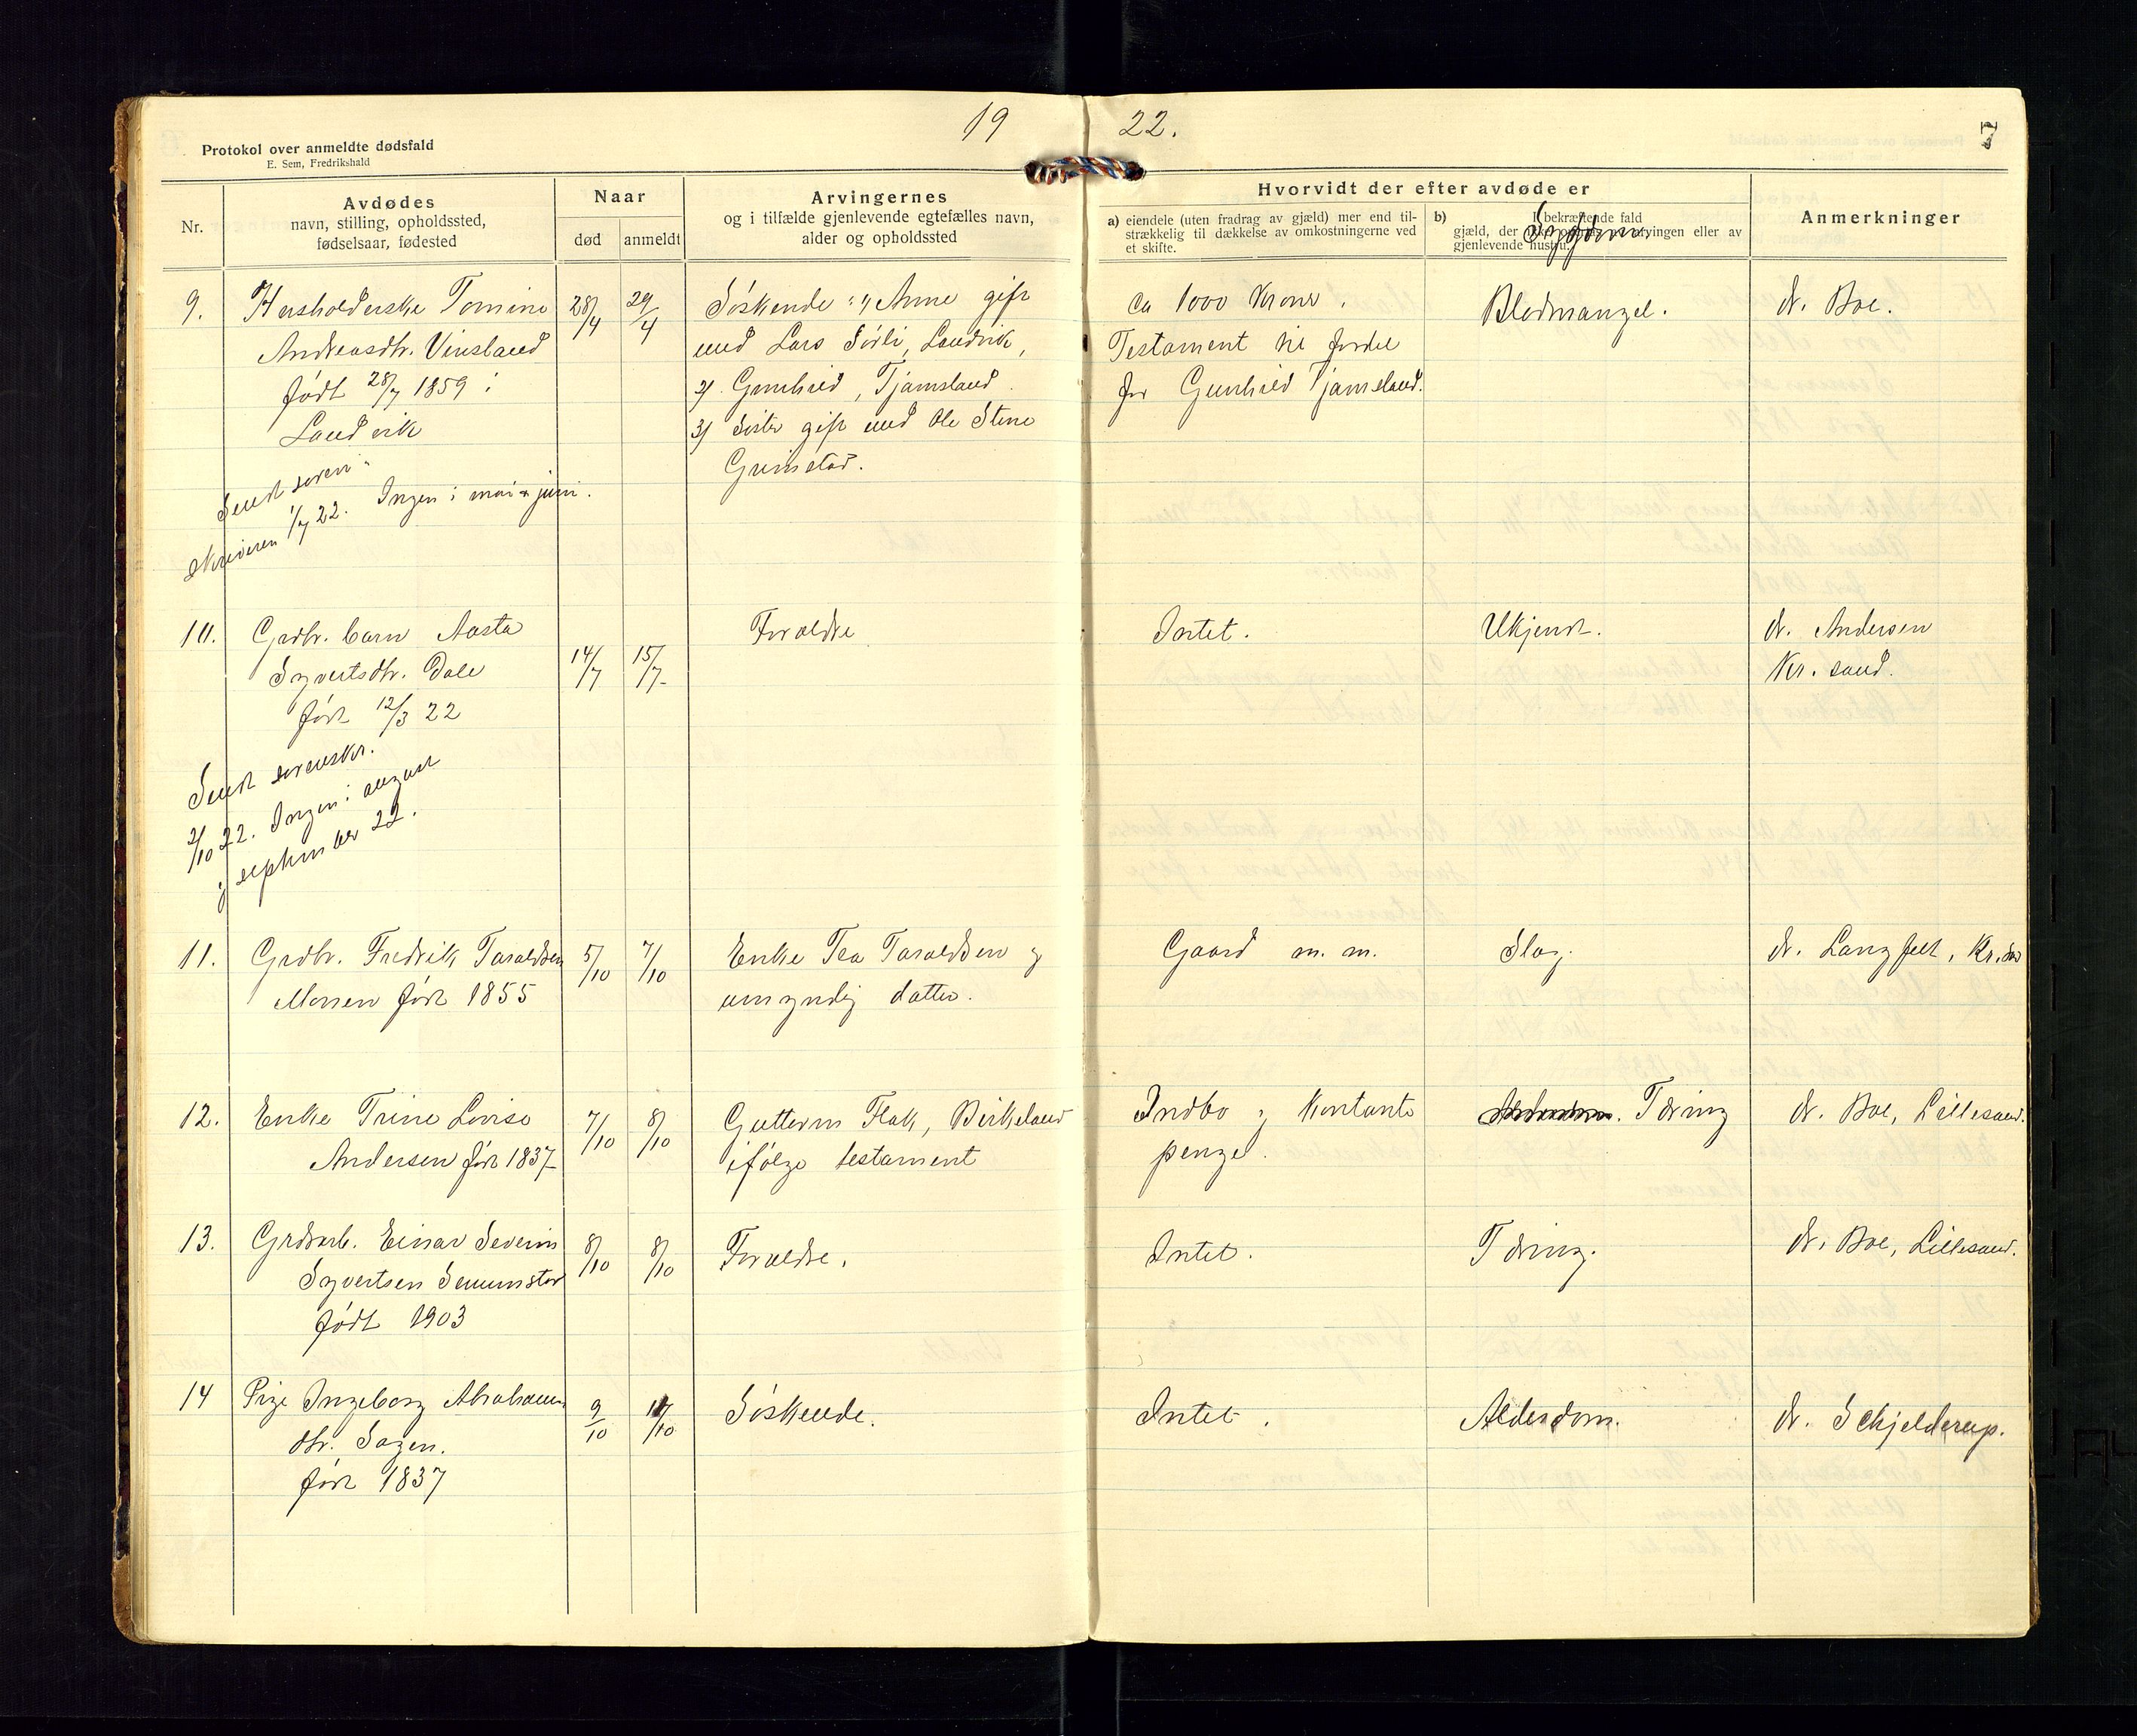 19 22.
7
Protokol over anmeldte dødsfald
E. Sem, Fredrikshald
Nr.
Avdødes
navn, stilling, opholdssted,
fødselsaar, fødested
Naar
død
anmeldt
Arvingernes
og i tilfælde gjenlevende egtefælles navn,
alder og opholdssted
Hvorvidt der efter avdøde er
a) eiendele (uten fradrag av gjæld) mer end til-
strækkelig til dækkelse av omkostningerne ved
et skifte.
b) I bekræftende fald
gjæld, der arvingen eller av
gjenlevende hustru.
Sygdom
Anmerkninger
9.
Husholderske Tomine
Andreasdtr. Vinsland
født 28/7 1859 i
Landvik
28/4
29/4
Søskende: 1) Anne gift
med Lars Sørli, Landvik,
2) Gunhild, Tjamsland.
3) Søster gift med Ole Stene
Grimstad.
ca 1000 Kroner.
Testament til fordel
for Gunhild Tjamsland.
Blodmangel.
dr. Boe.
Sendt soren-
skriveren 1/7 22. Ingen i mai & juni.
10.
Grdbr. barn Aasta
Syvertsdtr. Dale
født 12/3 22
14/7
15/7
Forældre
Intet.
Ukjendt.
dr. Andersen
Kr. sand.
Sendt sorenskr.
2/10 22. Ingen i august
og september 22.
11.
Grdbr. Fredrik Taraldsen
Monen født 1855
5/10
7/10
Enke Tea Taraldsen og
umyndig datter.
Gaard m. m.
Slag.
dr. Langfelt, Kr.sa
12.
Enke Trine Lovise
Andersen født 1837
7/10
8/10
Guttorm Flak, Birkeland
ifølge testament
Indbo og Kontante
penger.
Tæring
dr. Boe, Lillesand.
13.
Grdarb. Einar Severin
Syvertsen
født 1903
8/10
8/10
Forældre.
Intet.
Tæring.
dr. Boe, Lillesand.
14
Pige Ingeborg Abrahams
dtr. Sagen.
født 1837
9/10
/10
Søskende.
Intet.
Alderdom.
dr. Schjelderup.